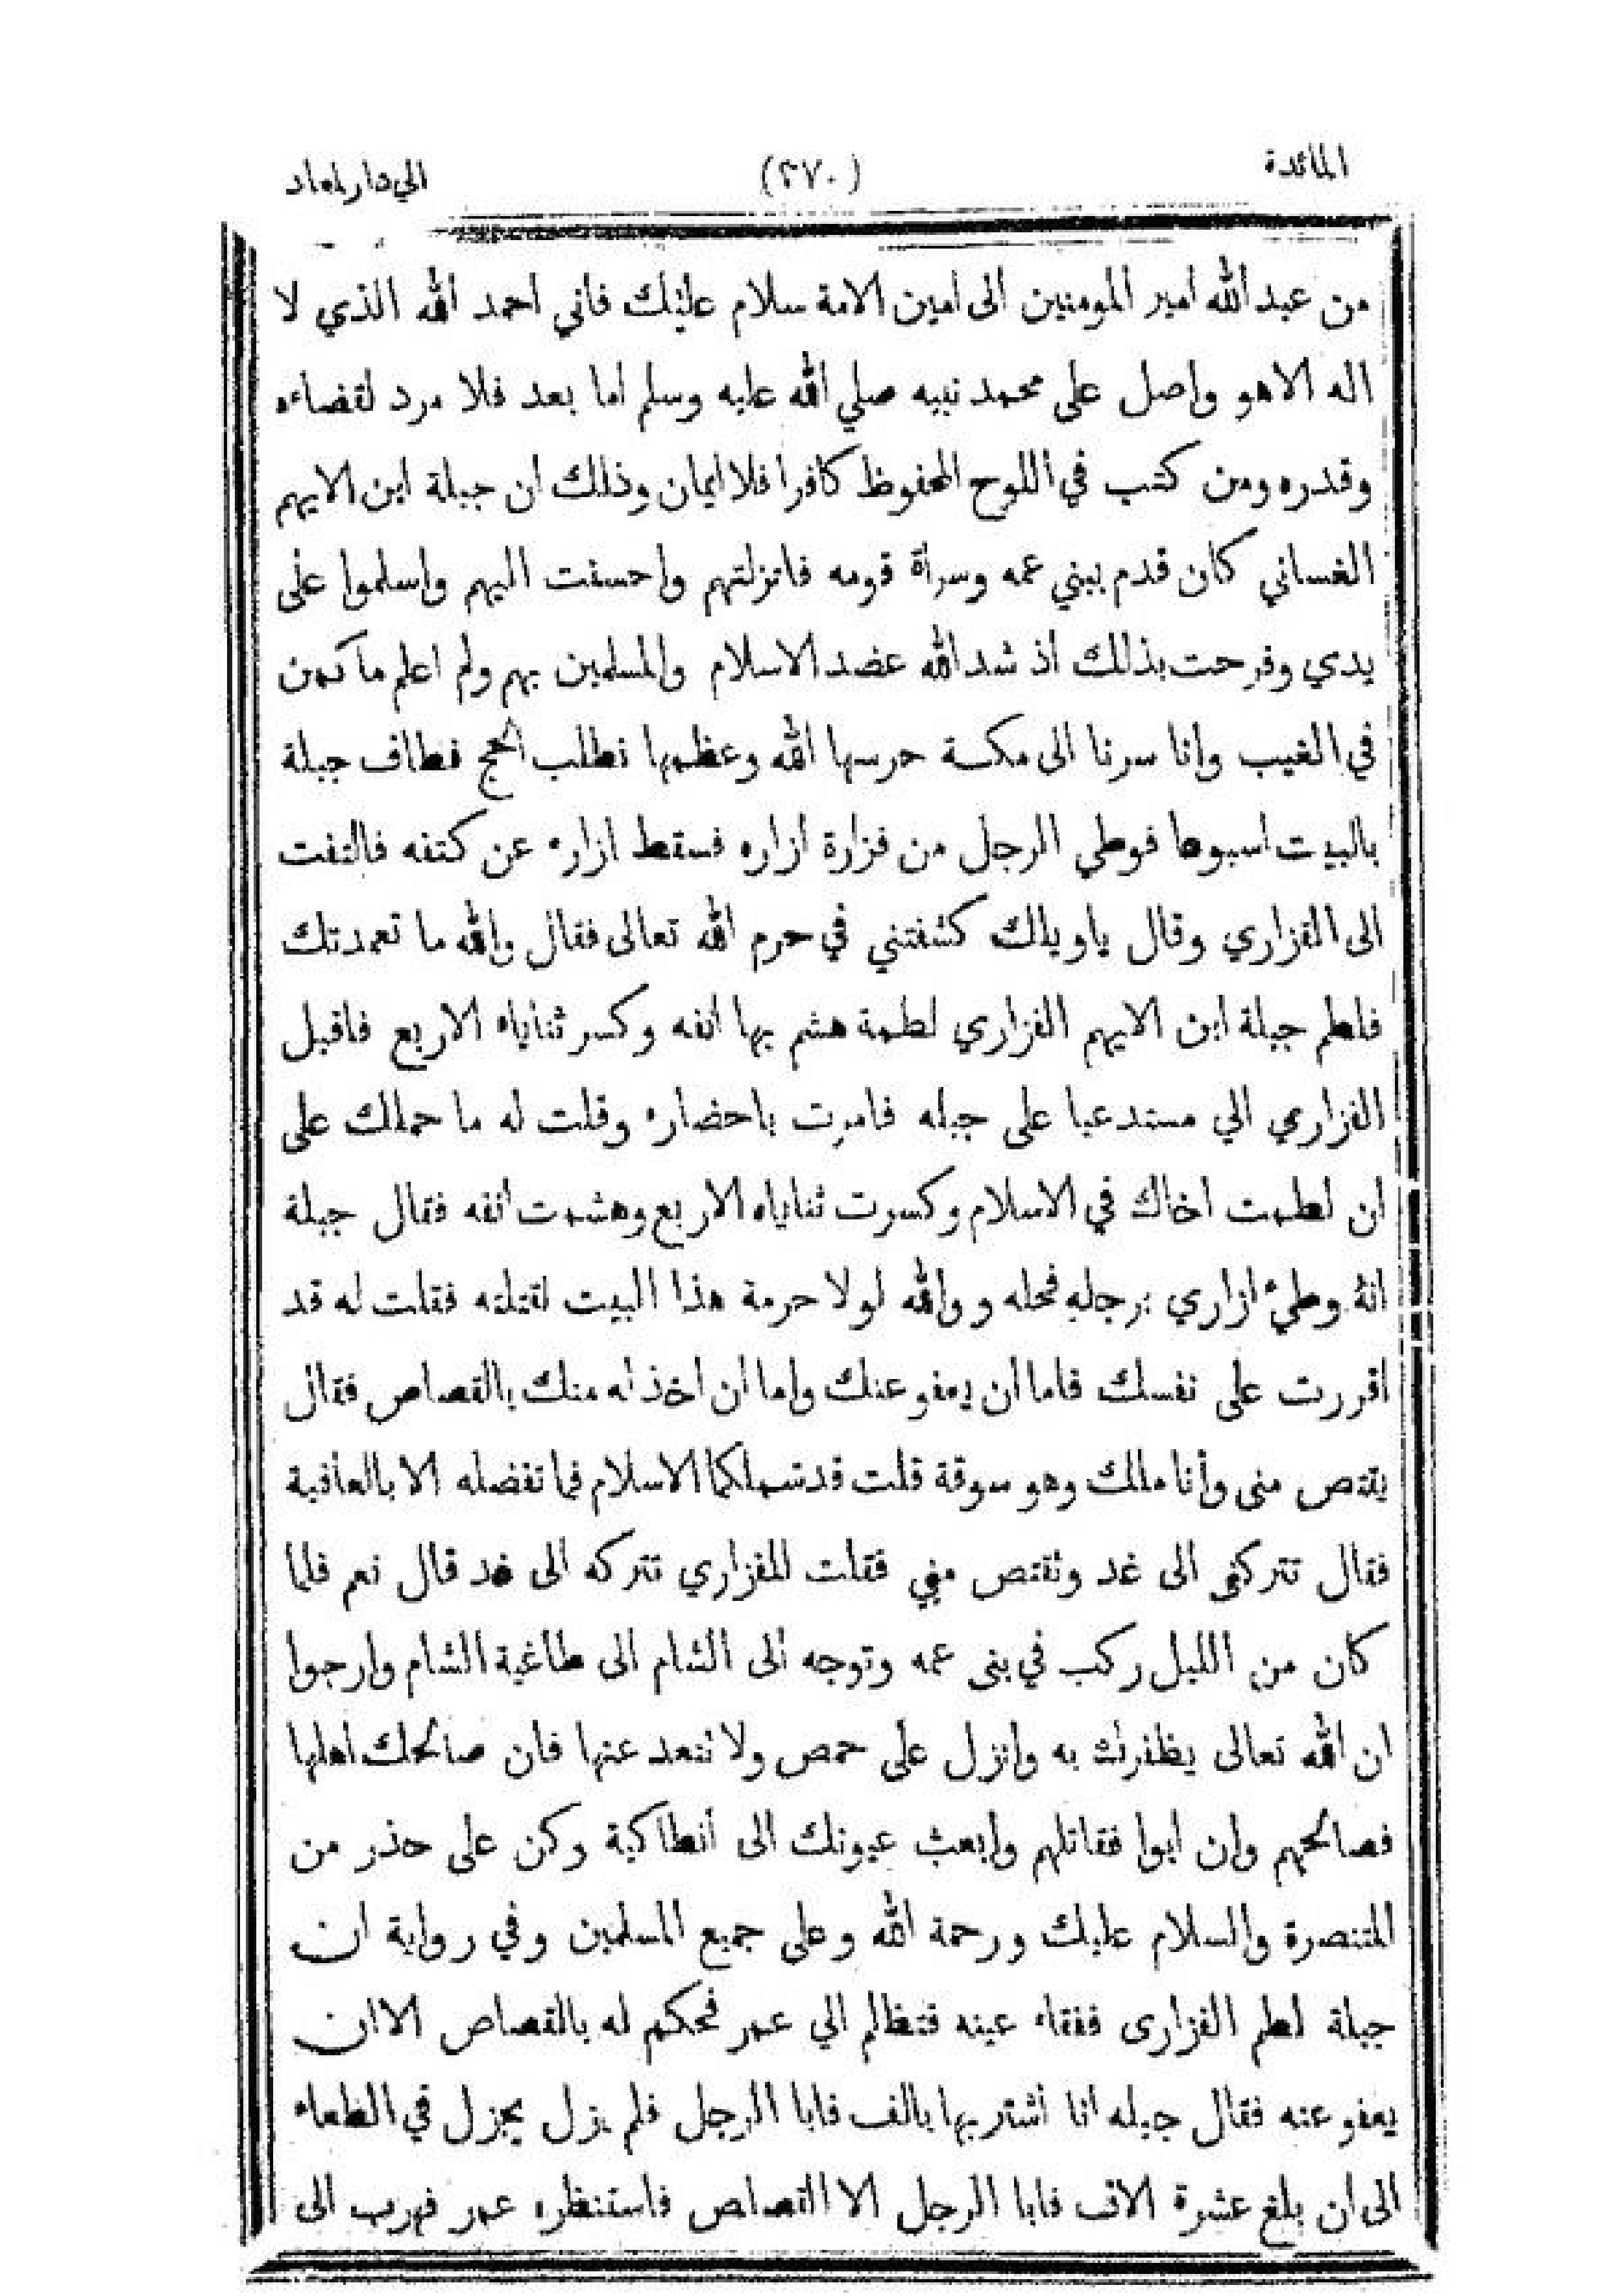 المائدة (٢٧٠) الي دار المعاد
من عبد الله امير المومنين الى امين الامة سلام عليك فاني احمد الله الذي لا
اله الا هو واصل على محمد نبيه صلي الله عليه وسلم اما بعد فلا مرد لقضاءه
وقدره ومن كتب في اللوح المحفوظ كافرا فلا ايمان وذلك ان جبلة ابن الايهم
الغساني كان قدم ببني عمه وسراة قومه فانزلتهم واحسنت اليهم واسلموا على
يدي وفرحت بذلك اذ شد الله عضد الاسلام والمسلمين بهم ولم اعلم ما كمن
في الغيب وانا سرنا الى مكة حرسها الله وعظمها نطلب الحج فطاف جبلة
بالبيت اسبوعا فوطي الرجل من فزارة ازاره فسقط ازاره عن كتفه فالتفت
الى الفزاري وقال ياويلك كشفتني في حرم الله تعالى فقال والله ما تعمدتك
فلطم جبلة ابن الايهم الفزاري لطمة هشم بها انفه وكسر ثناياه الاربع فاقبل
الفزاري الي مستدعيا على جبله فامرت باحضاره وقلت له ما حملك على
ان لطمت اخاك في الاسلام وكسرت ثناياه الاربع وهشمت انفه فقال جبلة
انه وطئ ازاري برجله فحله و والله لولا حرمة هذا البيت لقتلته فقلت له قد
اقررت على نفسك فاما ان يعفو عنك واما ان اخذ له منك بالقصاص فقال
يقتص منى وأنا ملك وهو سوقة قلت قد شملكما الاسلام فما تفضله الا بالعافية
فقال تتركنى الى غد وتقتص مني فقلت للفزاري تتركه الى غد قال نعم فلما
كان من الليل ركب في بنى عمه وتوجه الى الشام الى طاغية الشام وارجوا
ان الله تعالى يظفرنك به وانزل على حمص ولا تتعد عنها فان صالحك اهلها
فصالحهم وان ابوا فقاتلهم وابعث عيونك الى أنطاكية وكن على حذر من
المتنصرة والسلام عليك ورحمة الله وعلى جميع المسلمين وفي رواية ان
جبلة لطم الفزارى ففقاء عينه فتظلم الي عمر فحكم له بالقصاص الا ان
يعفو عنه فقال جبله انا أشتريها بالف فابا الرجل فلم يزل يجزل في العطاء
الى ان بلغ عشرة الاف فابا الرجل الا القصاص فاستنظره عمر فهرب الى